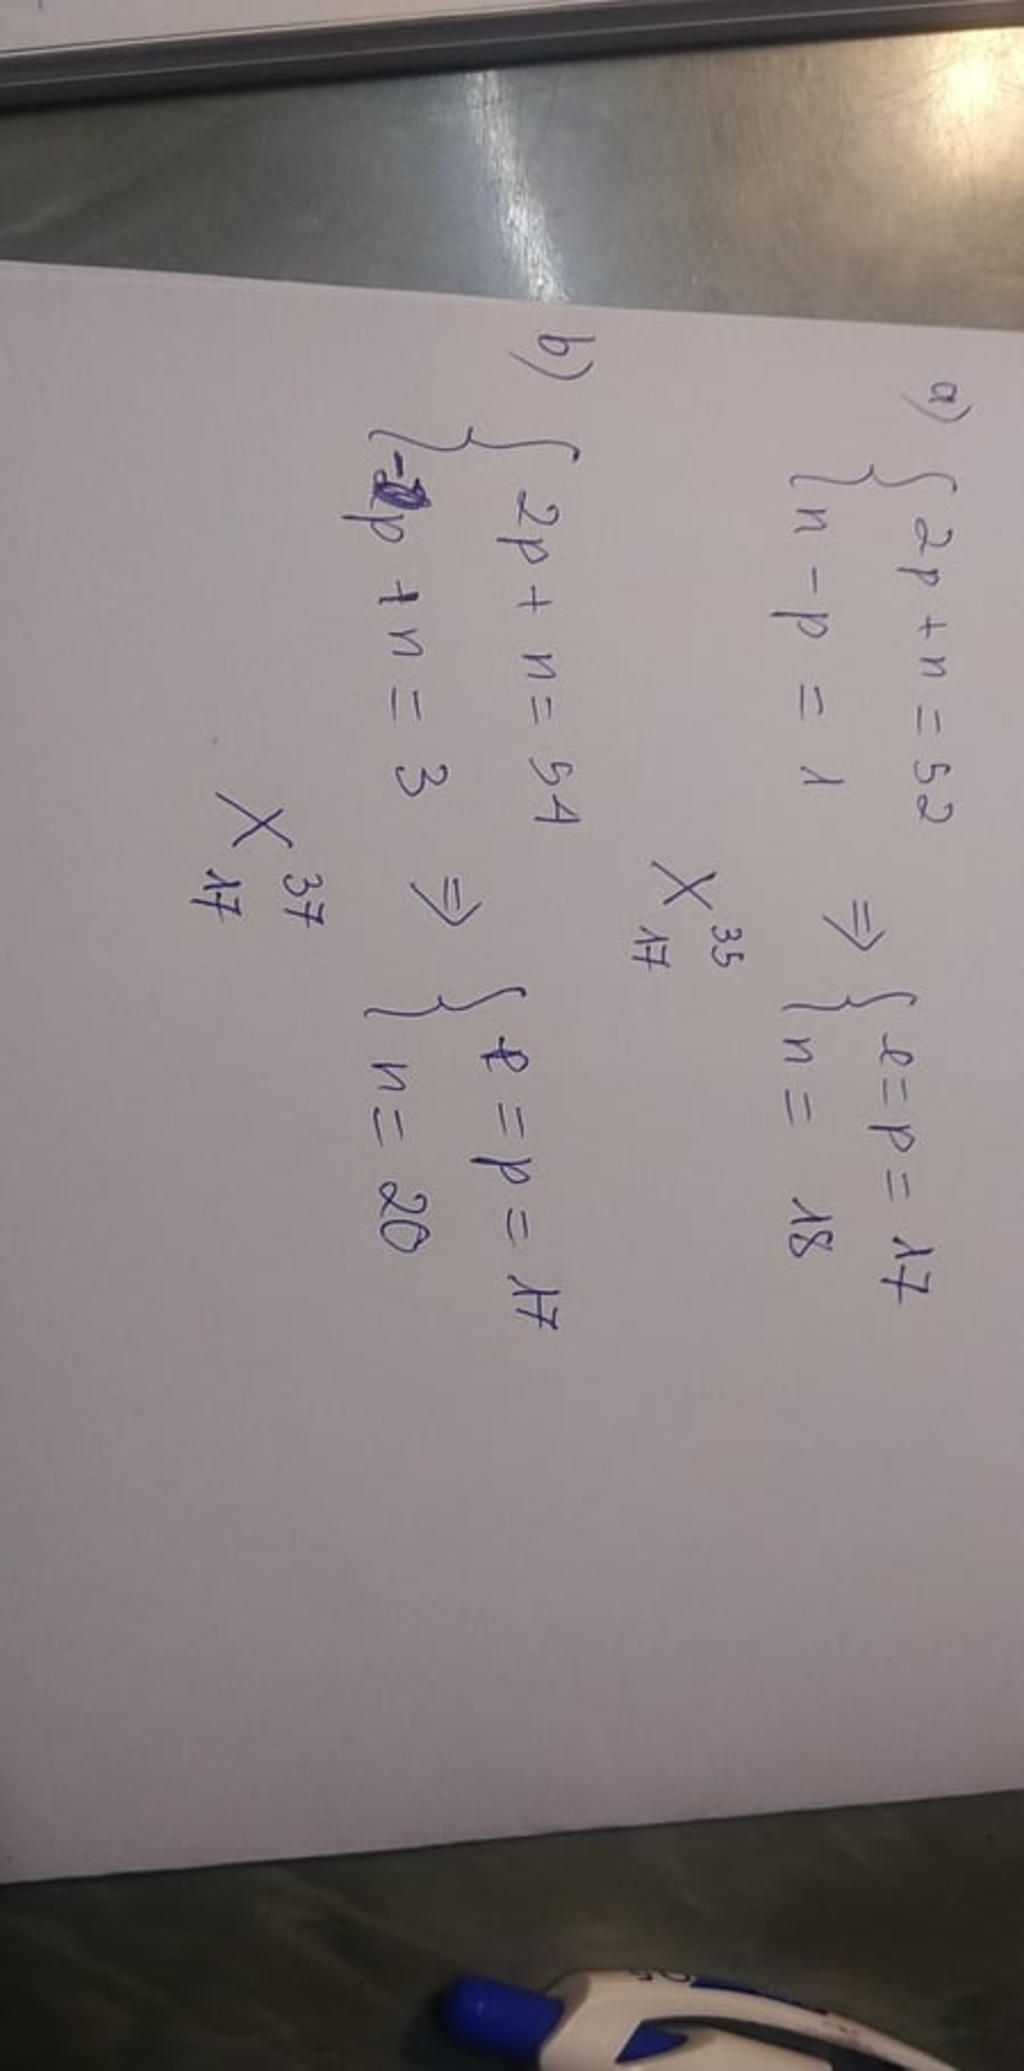 a) { 2p + n = 52
n - p = 1 ⇒ { e = p = 17
n = 18
X 35
17
b) { 2p + n = 54
-p + n = 3 ⇒ { e = p = 17
n = 20
X 37
17